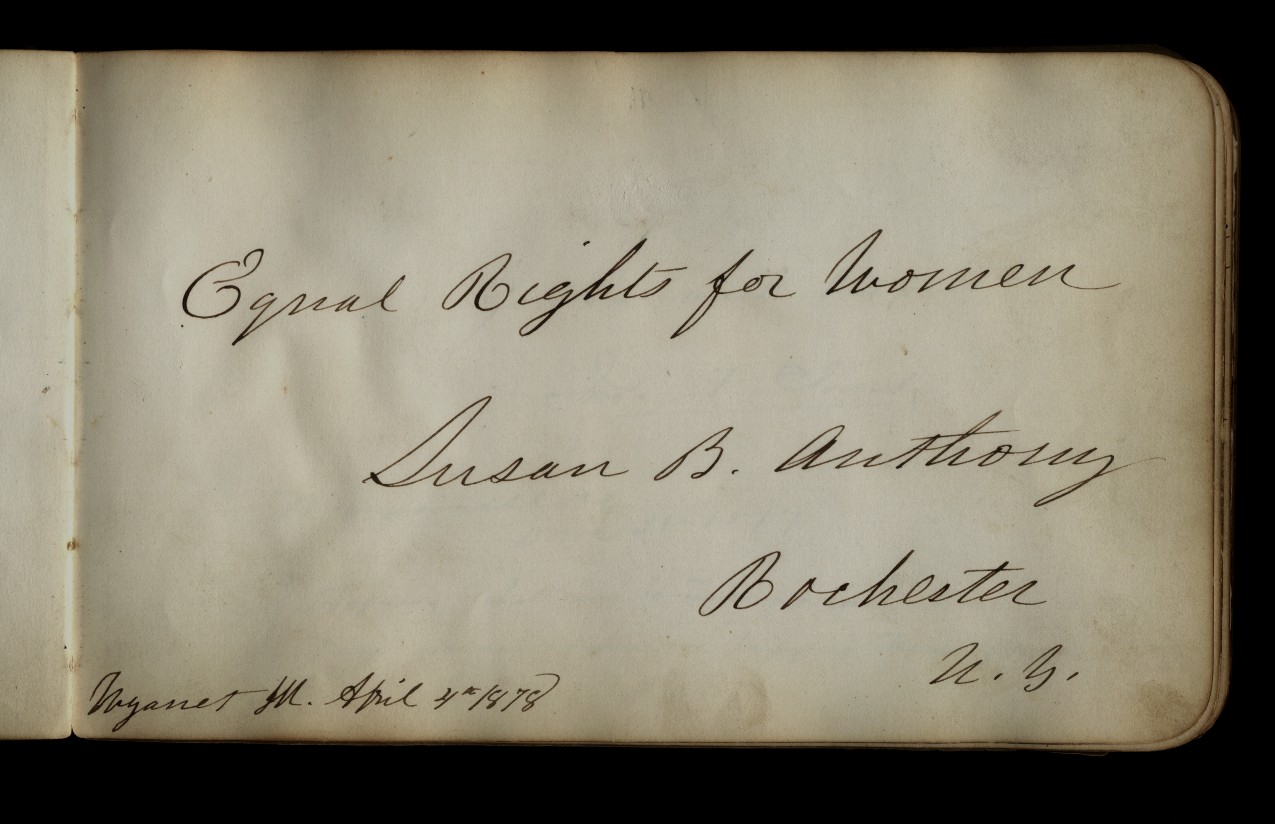 Equal Rights for Women
Susan B. Anthony
Rochester
N. Y.
Wyanet Ill. April 4th 1878